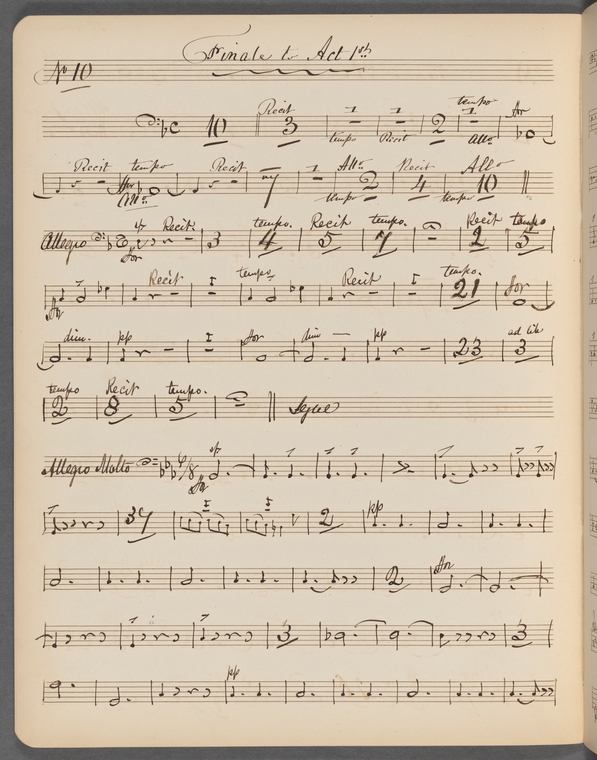 Finale to Act 1st
No 10
Recit tempo
10 3 1 1 2 1 ffor
tempo Recit allo
Recit tempo Recit Allo Recit Allo
7 1 2 4 10
ffor tempo tempo
Allegro Recit. tempo. Recit tempo. Recit tempo
3 4 5 7 2 5
for
Recit 1 tempo Recit 1 tempo. for
21
dim. pp 1 ffor dim pp ad lib
23 3
tempo Recit tempo.
2 8 5 Segue
Allegro Molto 6/8 sf
ffor
37 1 1 2 pp
2 ffor
3 3
pp